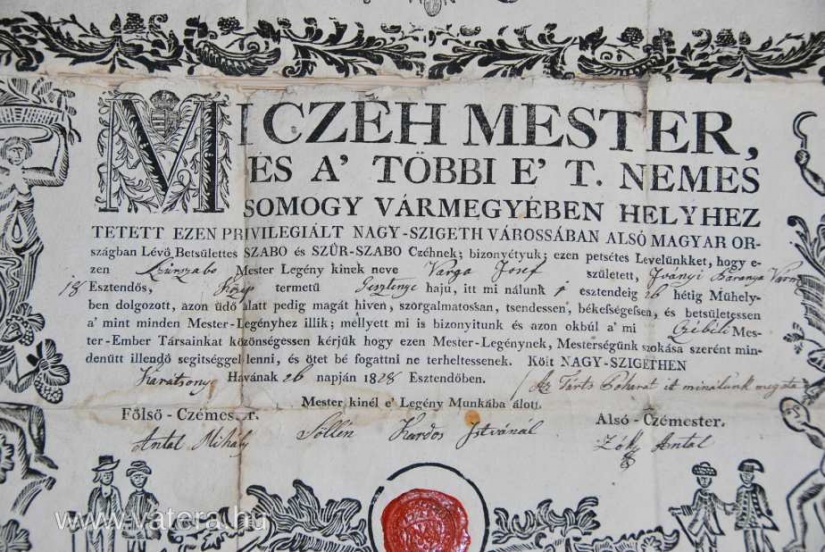 MI CZÉH MESTER,
ES A' TÖBBI E' T. NEMES
SOMOGY VÁRMEGYÉBEN HELYHEZ
TETETT EZEN PRIVILEGIÁLT NAGY-SZIGETH VÁROSSÁBAN ALSÓ MAGYAR OR-
szágban Lévő Betsülettes SZABO és SZŰR-SZABO Czéhnek; bizonyétyuk; ezen petsétes Levelünkket, hogy e-
zen Szűrszabo Mester Legény kinek neve Varga Josef született, Iványi Baranya Várm
18 Esztendős, Közép termetű Gesztenye haju, itt mi nálunk 1 esztendeig 26 hétig Műhely-
ben dolgozott, azon üdő alatt pedig magát hiven, szorgalmatossan, tsendessen, békeségesen, és betsületessen
a' mint minden Mester-Legényhez illik; mellyett mi is bizonyitunk és azon okbúl a' mi Czibéli Mes-
ter-Ember Társainkat közönségessen kérjük hogy ezen Mester-Legénynek, Mesterségünk szokása szerént min-
denütt illendő segitséggel lenni, és őtet bé fogattni ne terheltessenek. Költ NAGY-SZIGETHEN
Karátsony Havának 26 napján 1828 Esztendőben. Az Tarts it minálunk
Mester kinél e' Legény Munkába álott.
Fölső-Czémester. Alsó-Czémester.
Antal Mihály Söllén Kardos Istvánál Antal
www.vatera.hu